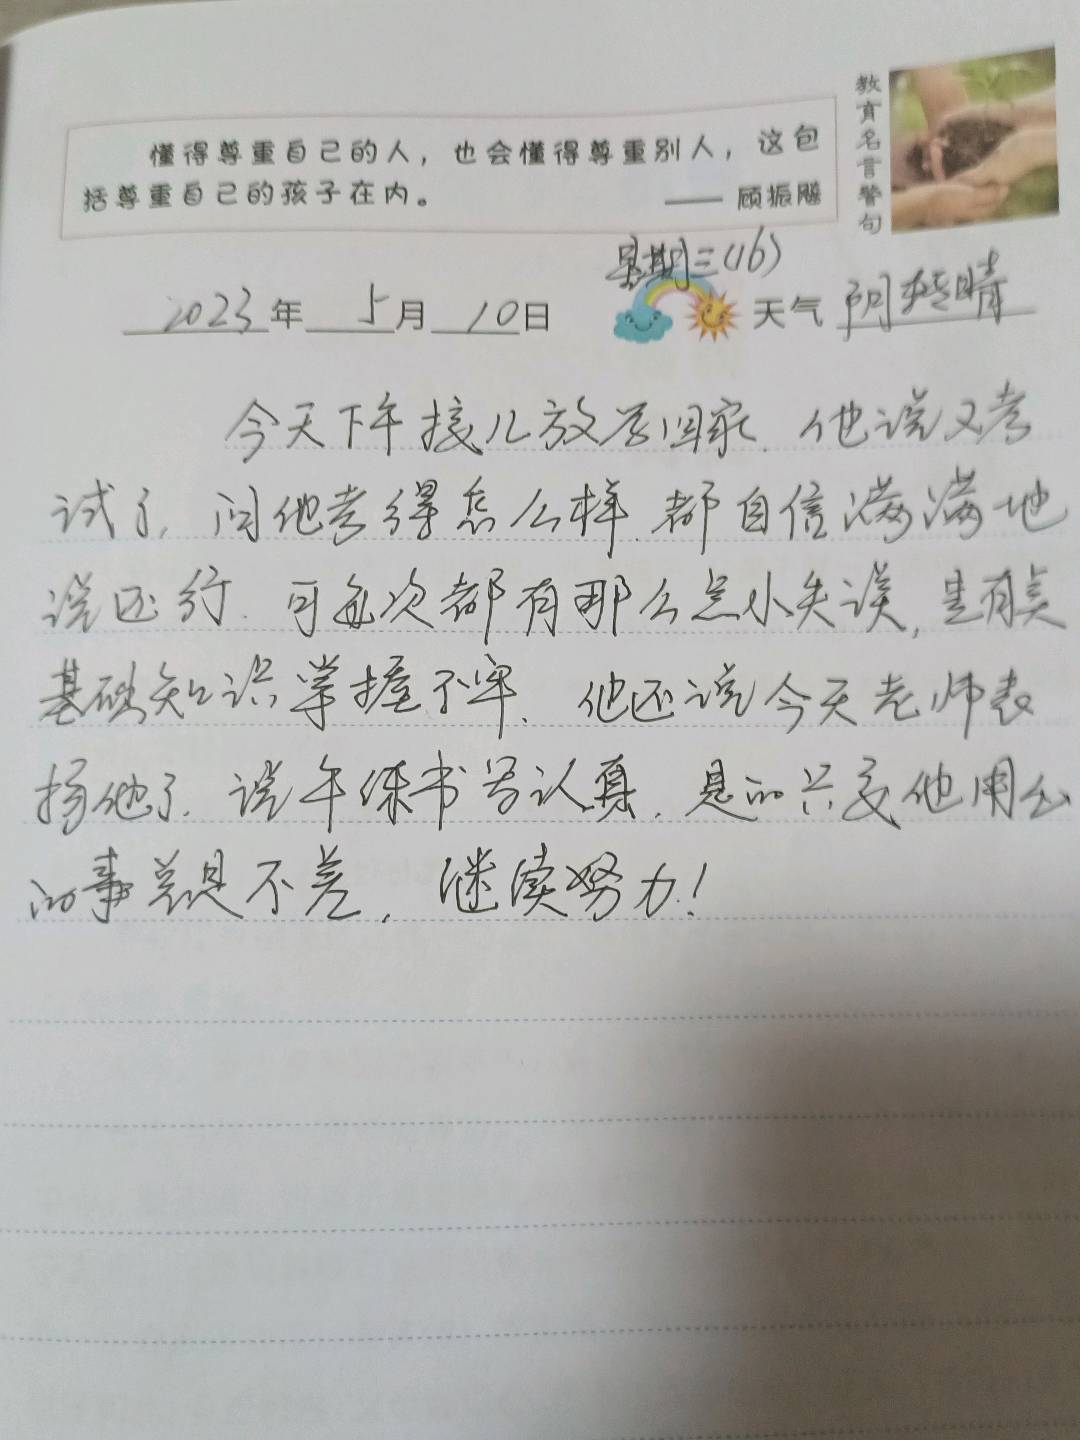 懂得尊重自己的人，也会懂得尊重别人，这包
括尊重自己的孩子在内。 —— 顾振飚
教育名言警句
星期三(16)
2023年 5月 10日 天气 阴转晴
今天下午接儿放学回家.他说又考
试了,问他考得怎么样.都自信满满地
说还行.可每次都有那么点小失误,是有些
基础知识掌握不牢.他还说今天老师表
扬他了.说午练书写认真.是的只要他用心
的事总是不差,继续努力!